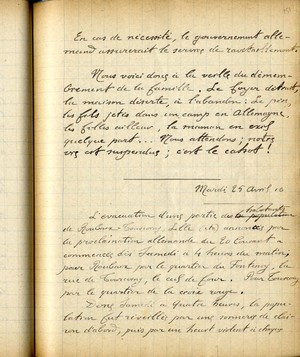 En cas de nécessité, le gouvernement alle-
mand assurerait le service de ravitaillement.
Nous voici donc à la veille du démem-
brement de la famille. Le foyer détruit,
la maison déserte, à l'abandon: Le père,
les fils jetés dans un camp en Allemagne,
les filles ailleurs, la maman en exil
quelque part... Nous attendons; notre
est suspendue; c'est le cahot!
Mardi 25 Avril 16
L'évacuation d'une partie des habitants
de Roubaix-Tourcoing-Lille, annoncée par
la proclamation allemande du 20 Courant a
commencé dès Samedi à 4 heures du matin,
pour Roubaix par le quartier du Fontenoy, la
rue de Tourcoing, le cul de four. Pour Tourcoing
par le quartier de la croix rouge.
Donc Samedi à quatre heures, la popu-
lation fut réveillée par une sonnerie de clai-
ron d'abord, puis par un heurt violent à chaque